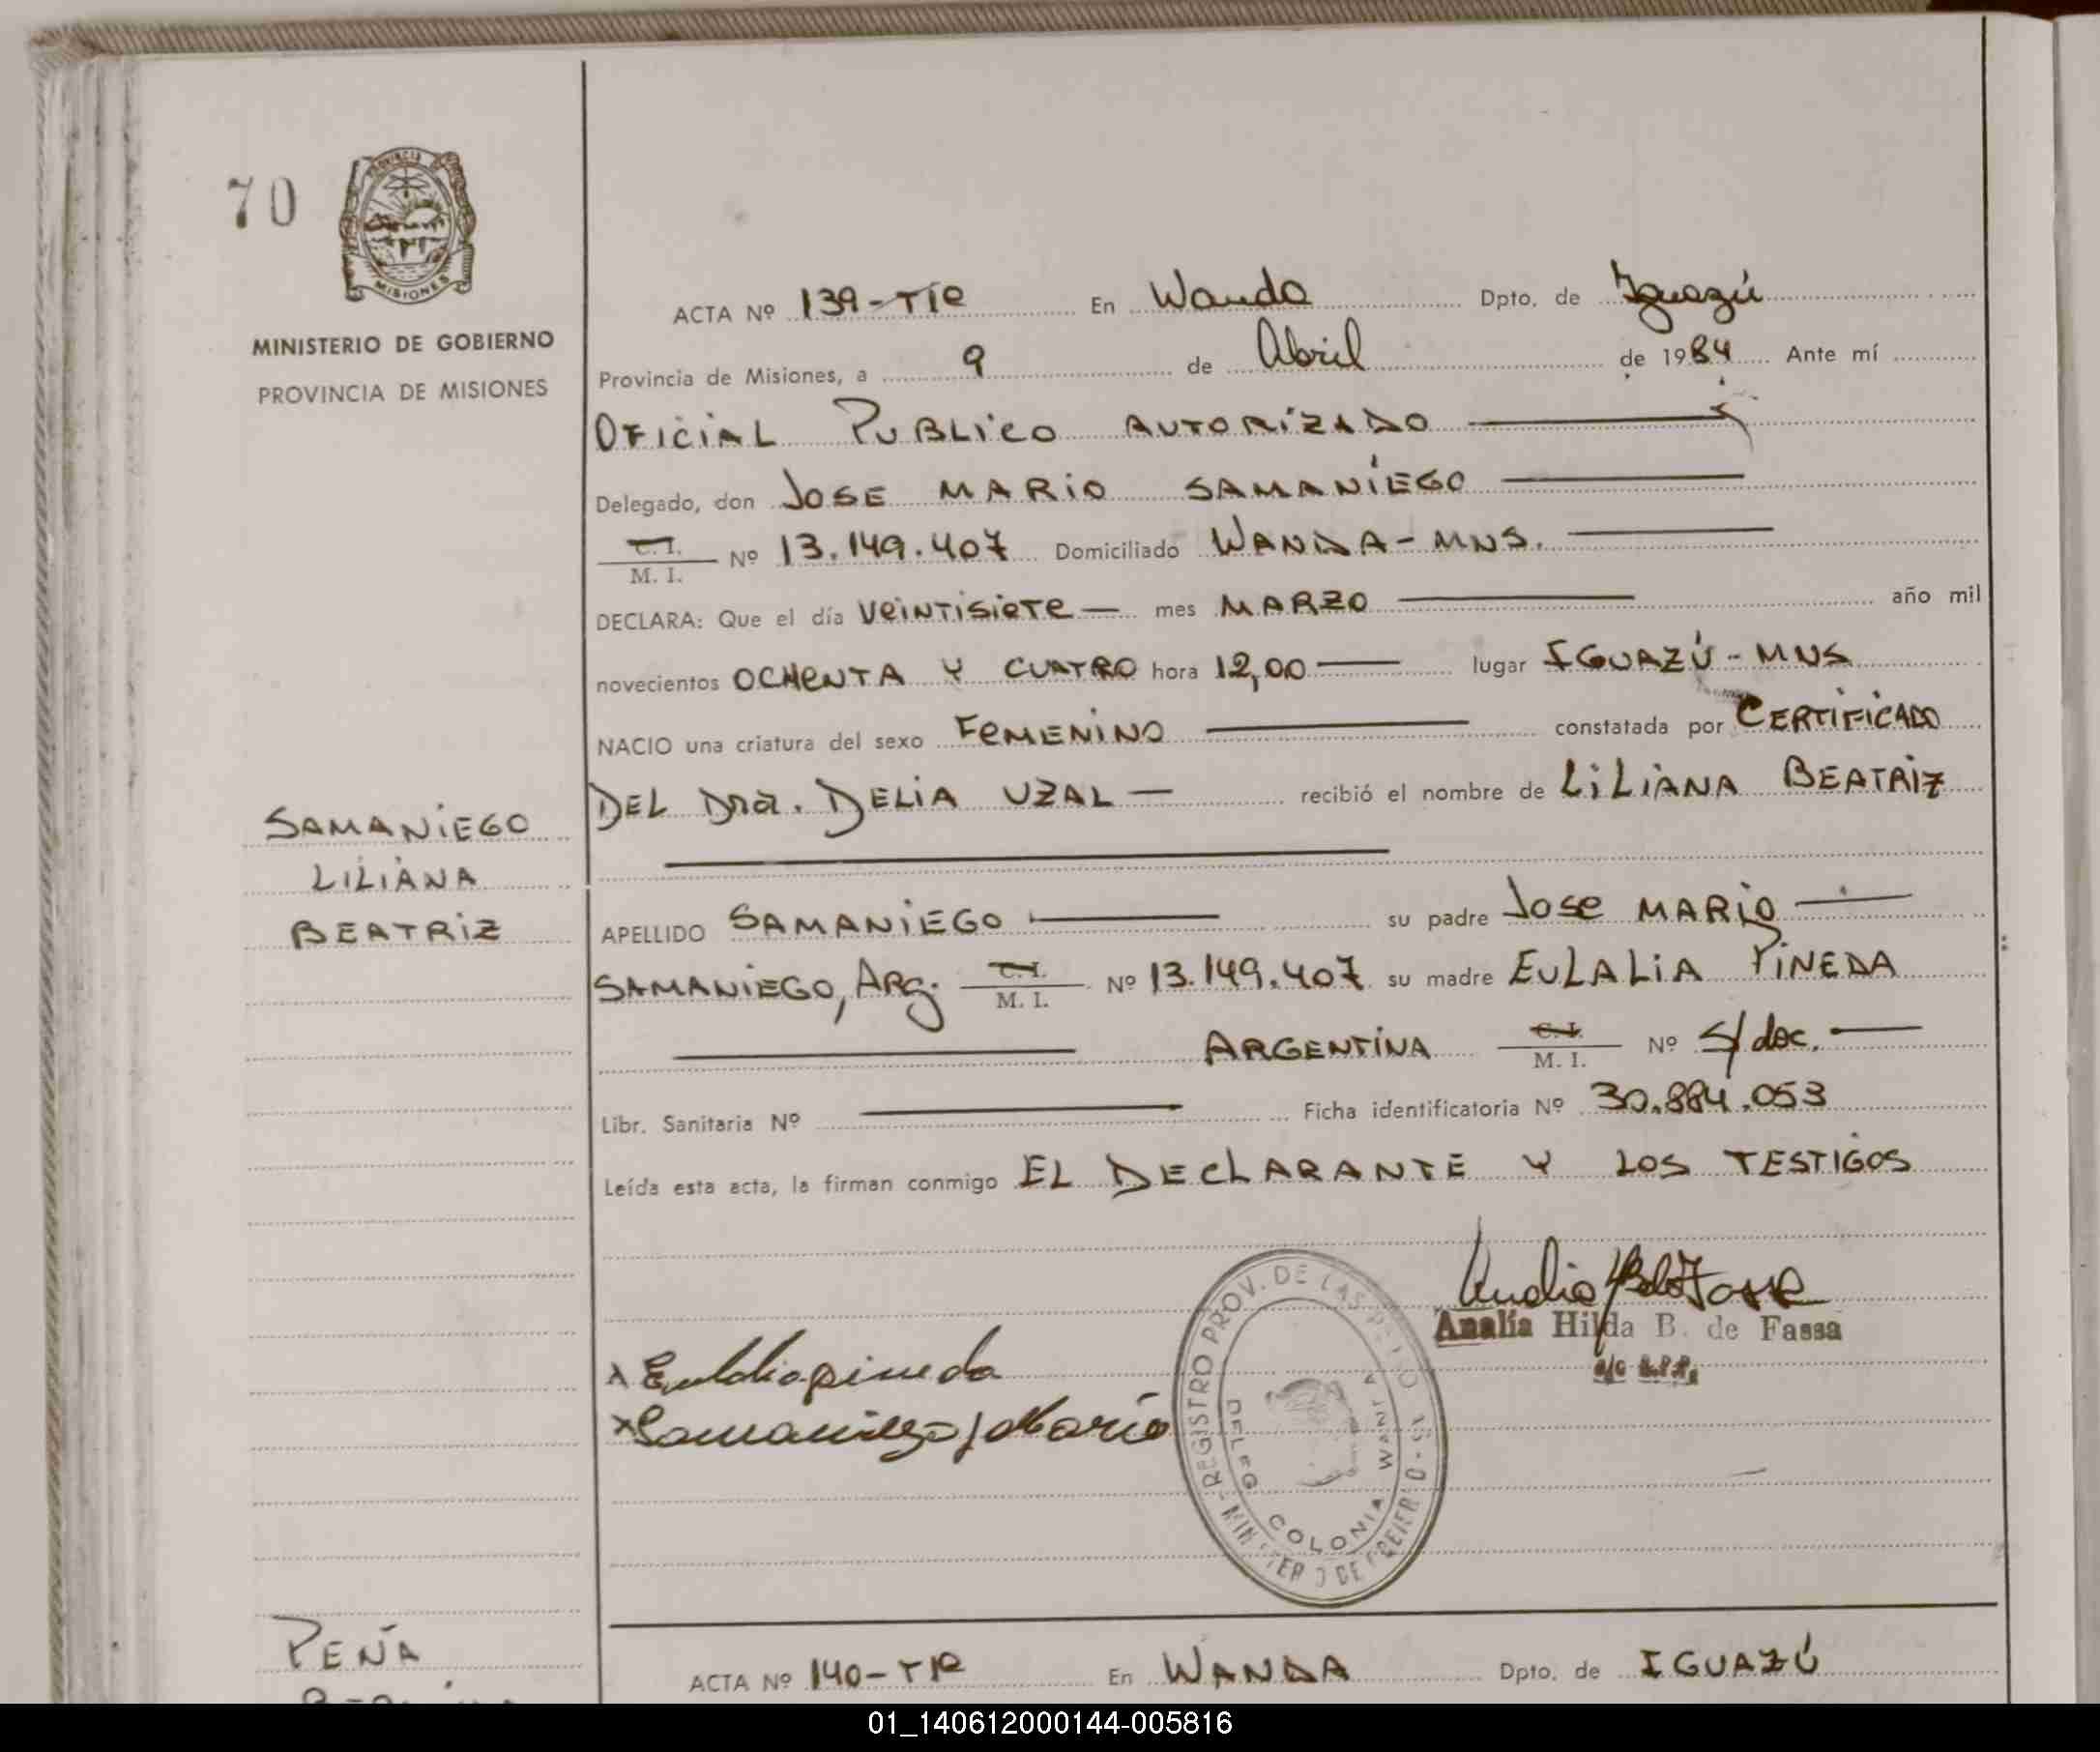 70
PROVINCIA
MISIONES
MINISTERIO DE GOBIERNO
PROVINCIA DE MISIONES
ACTA Nº 139-TIR En Wanda Dpto. de Iguazú
Provincia de Misiones, a 9 de Abril de 1984 Ante mí
OFICIAL PUBLICO AUTORIZADO
Delegado, don JOSE MARIO SAMANIEGO
C. I.
M. I. Nº 13.149.407 Domiciliado WANDA-MNS.
DECLARA: Que el día VEINTISIETE mes MARZO año mil
novecientos OCHENTA Y CUATRO hora 12,00 lugar IGUAZÚ-MNS
NACIO una criatura del sexo FEMENINO constatada por CERTIFICADO
DEL Dra. DELIA UZAL recibió el nombre de LILIANA BEATRIZ
SAMANIEGO
LILIANA
BEATRIZ
APELLIDO SAMANIEGO su padre JOSE MARIO
SAMANIEGO, ARG. C. I.
M. I. Nº 13.149.407 su madre EULALIA PINEDA
ARGENTINA C. I.
M. I. Nº S/doc.
Libr. Sanitaria Nº Ficha identificatoria Nº 30.884.053
Leída esta acta, la firman conmigo EL DECLARANTE Y LOS TESTIGOS
Analía Hilda B. de Fassa
x Eulalia pineda
x Samaniego J Mario
REGISTRO PROV. DE LAS
DELEG. COLONIA WANDA
PEÑA
ACTA Nº 140-TIR En WANDA Dpto. de IGUAZÚ
01_140612000144-005816